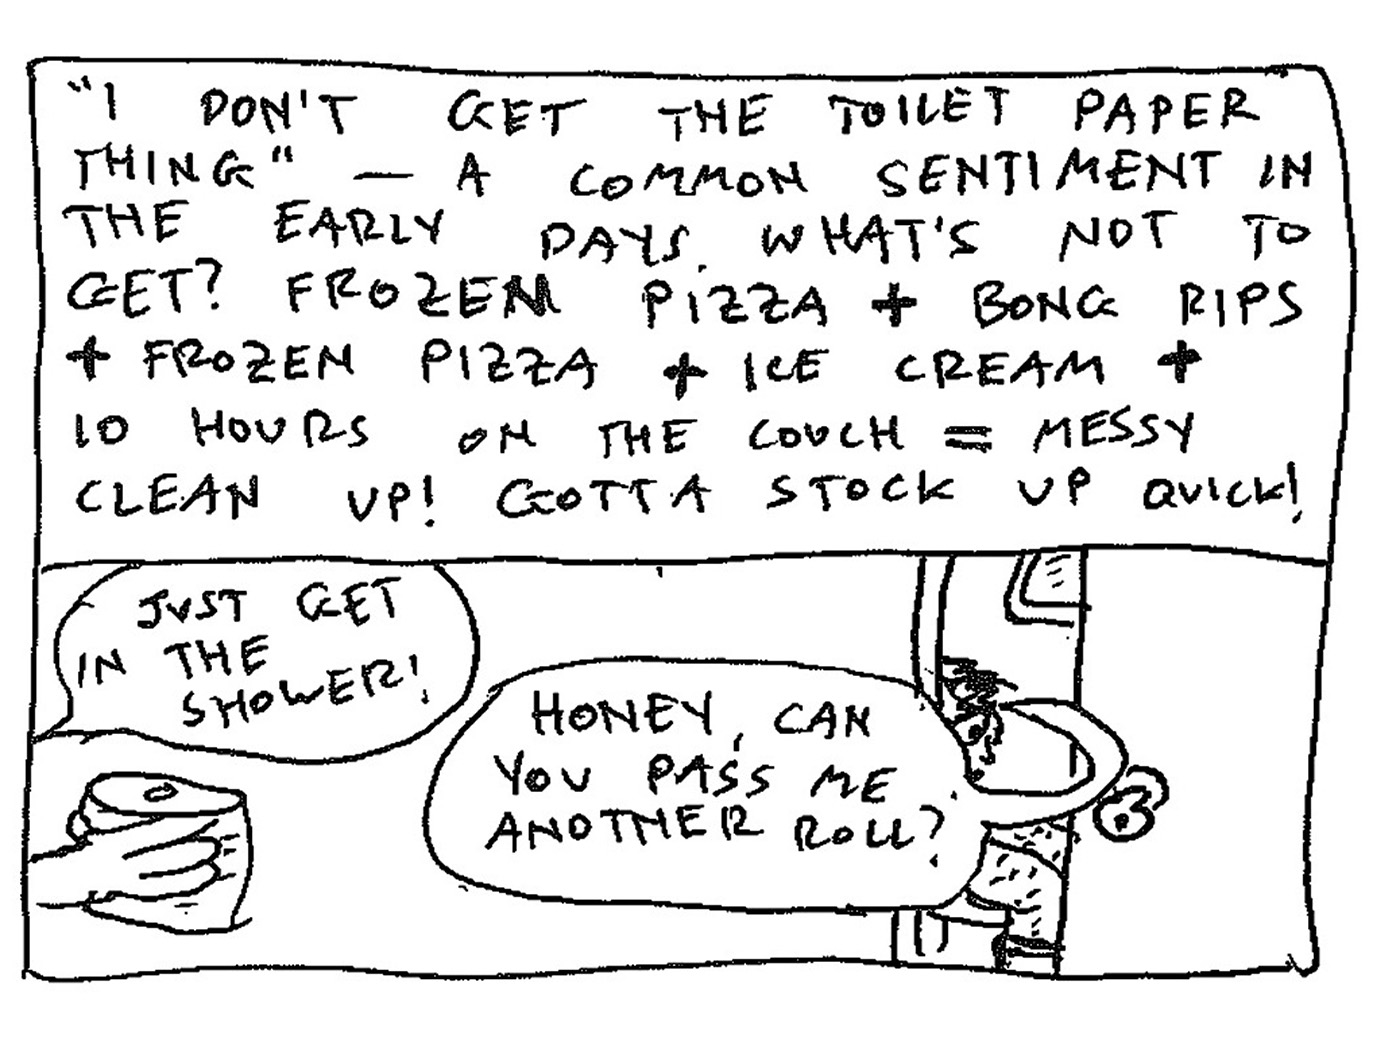 "I DON'T GET THE TOILET PAPER
THING" — A COMMON SENTIMENT IN
THE EARLY DAYS. WHAT'S NOT TO
GET? FROZEN PIZZA + BONG RIPS
+ FROZEN PIZZA + ICE CREAM +
10 HOURS ON THE COUCH = MESSY
CLEAN UP! GOTTA STOCK UP QUICK!
JUST GET
IN THE
SHOWER!
HONEY, CAN
YOU PASS ME
ANOTHER ROLL?